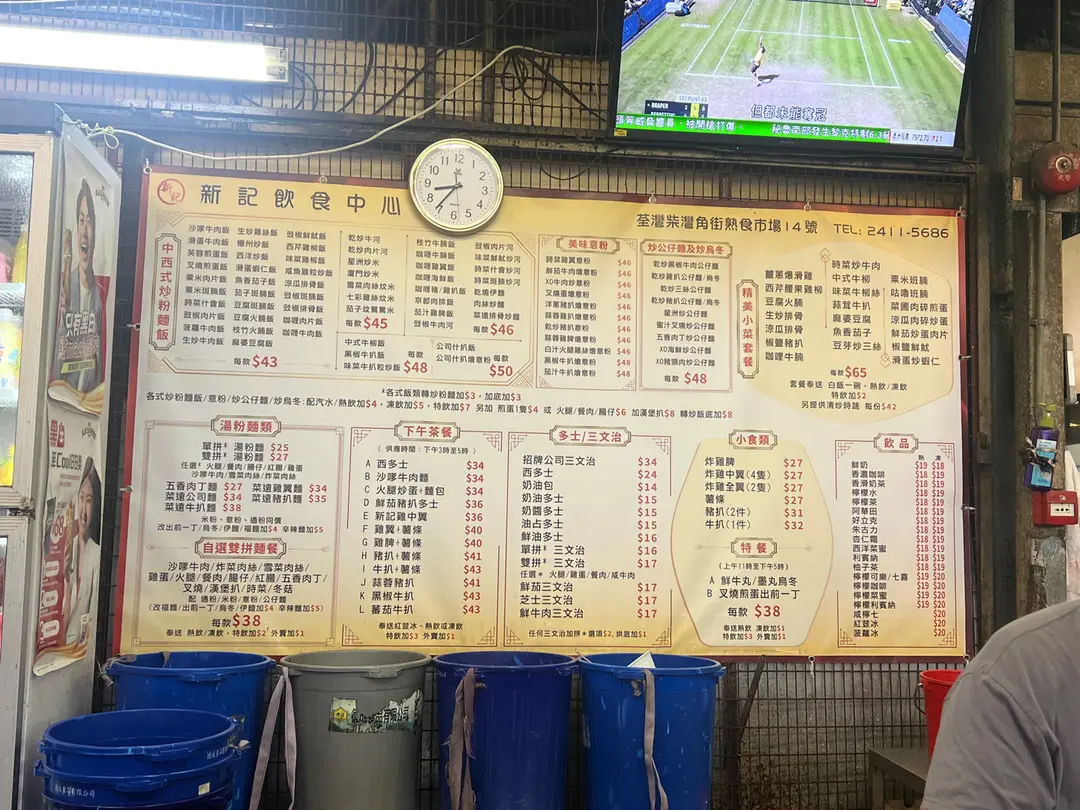 但都未能奪冠
DRAPER
新記
新記飲食中心
荃灣柴灣角街熟食市場14號 TEL: 2411-5686
中西式炒粉麵飯
沙嗲牛肉飯
滑蛋牛肉飯
芙蓉煎蛋飯
叉燒煎蛋飯
粟米肉片飯
粟米斑腩飯
時菜什會飯
豉椒肉片飯
菠蘿牛肉飯
生炒牛肉飯
生炒雞絲飯
楊州炒飯
西洋炒飯
滑蛋蝦仁飯
魚香茄子飯
茄子斑腩飯
豆腐斑腩飯
豆腐火腩飯
枝竹火腩飯
麻婆豆腐飯
豉椒鮮魷飯
西芹雞柳飯
味菜雞柳飯
咸魚雞粒炒飯
涼瓜排骨飯
豉椒斑腩飯
豉椒排骨飯
咖喱肉片飯
咖喱牛肉飯
每款 $43
乾炒牛河
乾炒肉片河
星洲炒米
廈門炒米
雪菜肉絲炆米
七彩雞絲炆米
茄子炆鴛鴦米
每款 $45
枝竹牛腩飯
咖喱牛腩飯
咖喱雞翼飯
咖喱海鮮飯
咖喱豬/雞扒飯
京都肉排飯
茄汁雞脾飯
豉椒牛肉河
豉椒肉片河
味菜鮮魷炒河
時菜什會炒河
時菜斑腩炒河
乾燒伊麵
肉絲炒麵
菜遠排骨炒麵
每款 $46
中式牛柳飯
黑椒牛扒飯
味菜牛扒粒炒飯
每款 $48
公司什扒飯
公司什扒燴意粉
每款 $50
美味意粉
時菜雞翼意粉 $46
鮮茄牛肉意粉 $46
XO牛肉炒意粉 $46
叉燒蛋燴意粉 $46
洋蔥豬扒燴意粉 $46
蒜蓉雞扒燴意粉 $46
乾炒豬扒意粉 $46
蒜蓉雞脾燴意粉 $46
白汁火腿雞絲燴意粉 $46
黑椒牛扒燴意粉 $48
茄汁牛扒燴意粉 $48
炒公仔麵及炒烏冬
乾炒黑椒牛肉公仔麵
乾炒雞扒公仔麵/烏冬
乾炒三絲公仔麵
乾炒豬扒公仔麵/烏冬
星洲炒公仔麵
蜜汁叉燒炒公仔麵
五香肉丁炒公仔麵
XO海鮮炒公仔麵
XO豬頸肉炒公仔麵
每款 $48
精美小菜套餐
薑蔥爆滑雞
西芹腰果雞柳
豆腐火腩
生炒排骨
涼瓜排骨
椒鹽豬扒
咖喱牛腩
時菜炒牛肉
中式牛柳
味菜牛柳絲
蒜茸牛扒
麻婆豆腐
魚香茄子
豆芽炒三絲
粟米斑腩
咕嚕斑腩
菜圃肉碎煎蛋
涼瓜肉碎炒蛋
鮮茄炒蛋肉片
椒鹽鮮魷
滑蛋炒蝦仁
每款 $65
套餐奉送 白飯一碗，熱飲/凍飲
特飲加$2
另提供清炒時蔬 每份$42
*各式飯類轉炒粉麵加$3，加底加$3
各式炒粉麵飯/意粉/炒公仔麵/炒烏冬:配汽水/熱飲加$4，凍飲加$5，特飲加$7 另加 煎蛋1隻$4 或 火腿/餐肉/腸仔$6 加漢堡扒$8 轉炒飯底加$8
湯粉麵類
單拼* 湯粉麵 $25
雙拼* 湯粉麵 $27
任選* 火腿/餐肉/腸仔/紅腸/雞蛋
沙嗲牛肉/雪菜肉絲/炸菜肉絲
五香肉丁麵 $27 菜遠雞翼麵 $34
菜遠公司麵 $34 菜遠豬扒麵 $35
菜遠牛扒麵 $38
米粉、意粉、通粉同價
改出前一丁/烏冬/伊麵/福麵加$4 辛辣麵加$5
自選雙拼麵餐
沙嗲牛肉/炸菜肉絲/雪菜肉絲/
雞蛋/火腿/餐肉/腸仔/紅腸/五香肉丁/
叉燒/漢堡扒/時菜/冬菇
配 通粉/米粉/意粉/公仔麵
(改福麵/出前一丁/烏冬/伊麵加$4 辛辣麵加$5)
每款$38
奉送 熱飲/凍飲，特飲加$2 外賣加$1
下午茶餐
( 供應時間：下午2時至5時 )
A 西多士 $34
B 沙嗲牛肉麵 $34
C 火腿炒蛋+麵包 $34
D 鮮茄豬扒多士 $36
E 新記雞中翼 $36
F 雞翼+薯條 $40
G 雞脾+薯條 $40
H 豬扒+薯條 $41
I 牛扒+薯條 $43
J 蒜蓉豬扒 $41
K 黑椒牛扒 $43
L 蕃茄牛扒 $43
奉送紅荳冰、熱飲或凍飲
特飲加$3 外賣加$1
多士/三文治
招牌公司三文治 $34
西多士 $24
奶油包 $14
奶油多士 $15
奶醬多士 $15
油占多士 $15
鮮油多士 $16
單拼* 三文治 $16
雙拼* 三文治 $17
任選* 火腿/雞蛋/餐肉/咸牛肉
鮮茄三文治 $17
芝士三文治 $17
鮮牛肉三文治 $17
任何三文治加拼*選項$2，烘底加$1
小食類
炸雞脾 $27
炸雞中翼(4隻) $27
炸雞全翼(2隻) $27
薯條 $27
豬扒(2件) $31
牛扒(1件) $32
特餐
(上午11時至下午5時)
A 鮮牛丸/墨丸烏冬
B 叉燒煎蛋出前一丁
每款 $38
奉送熱飲 凍飲加$1
特飲加$3 外賣加$1
飲品
熱 凍
鮮奶 $19 $18
香濃咖啡 $18 $19
香滑奶茶 $18 $19
檸檬水 $18 $19
檸檬茶 $18 $19
阿華田 $18 $19
好立克 $18 $19
朱古力 $18 $19
杏仁霜 $18 $19
西洋菜蜜 $18 $19
利賓納 $18 $19
柚子茶 $18 $19
檸檬可樂/七喜 $19 $20
檸檬咖啡 $19 $20
檸檬菜蜜 $19 $20
檸檬利賓納 $19 $20
咸檸七 $20
紅荳冰 $20
菠蘿冰 $20
只有黑白
黑白